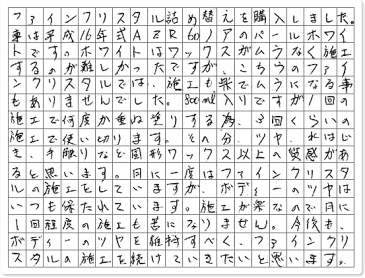 ファインクリスタル詰め替えを購入しました。
車は平成16年式AZR60ノアのパールホワイ
トです。ホワイトはワックスがムラなく施工
するのが難しかったですが、こちらのファイ
ンクリスタルでは、施工も楽でムラになる事
もありませんでした。800ml入りですが1回の
施工で何度か重ね塗りする為、3回くらいの
施工で使い切ります。その分、ツヤ、水はじ
き、手触りなど固形ワックス以上の質感があ
ると思います。月に一度はファインクリスタ
ルの施工をしていますが、ボディーのツヤは
いつも保たれています。施工が楽なので月に
1回程度の施工も苦になりません。今後も、
ボディーのツヤを維持すべく、ファインクリ
スタルの施工を続けていきたいと思います。